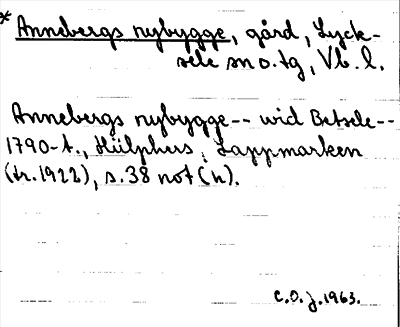 * Annebergs nybygge, gård, Lyck-
sele sn o. tg, Vb. l.
Annebergs nybygge -- wid Betsele --
1790-t., Hülphers, Lappmarken
(tr. 1922), s. 38 not (n).
C.O.J. 1963.